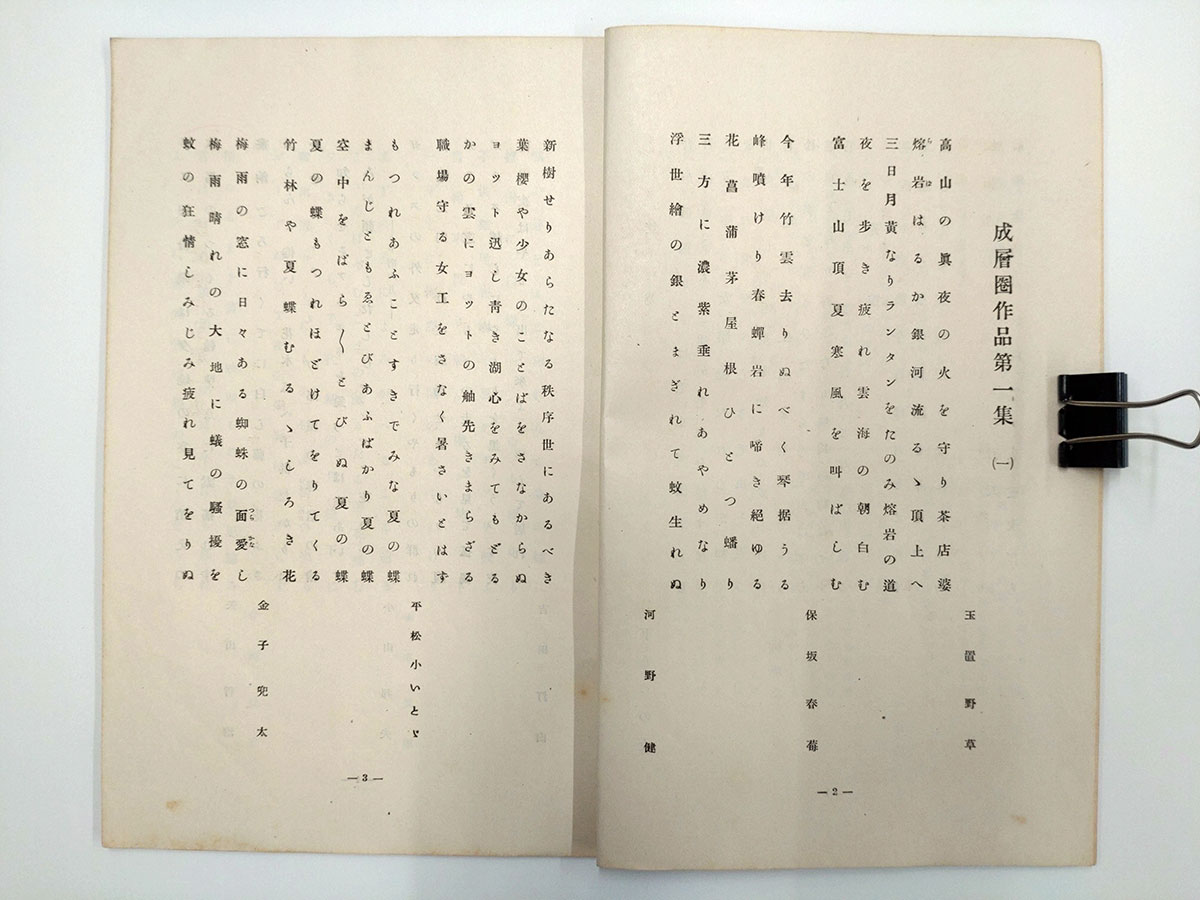 成層圏作品第一集 (一)
玉置野草
高山の眞夜の火を守り茶店婆
熔岩はるか銀河流るゝ頂上へ
らば
三日月黄なりランタンをたのみ熔岩の道
夜を歩き疲れ雲海の朝白む
富士山頂夏寒風を叫ばしむ
保坂春苺
今年竹雲去りぬべく琴据うる
峰噴けり春蟬岩に啼き絶ゆる
花菖蒲茅屋根ひとつ蟠り
三方に濃紫垂れあやめなり
浮世繪の銀とまぎれて蚊生れぬ
—2—
河野健
新樹せりあらたなる秩序世にあるべき
葉櫻や少女のことばをさなからぬ
ヨット迅し靑き湖心をみてもどる
かの雲にヨットの舳先きまらざる
職場守る女工をさなく暑さいとはず
平松小いとゞ
もつれあふことすきでみな夏の蝶
まんじともゑとびあふばかり夏の蝶
空中をばら〱とびぬ夏の蝶
夏の蝶もつれほどけてをりてくる
竹林や夏蝶むるゝしろき花
金子兜太
梅雨の窓に日々ある蜘蛛の面愛し
つらかな
梅雨晴れの大地に蟻の騷擾を
蚊の狂情しみじみ疲れ見てをりぬ
—3—